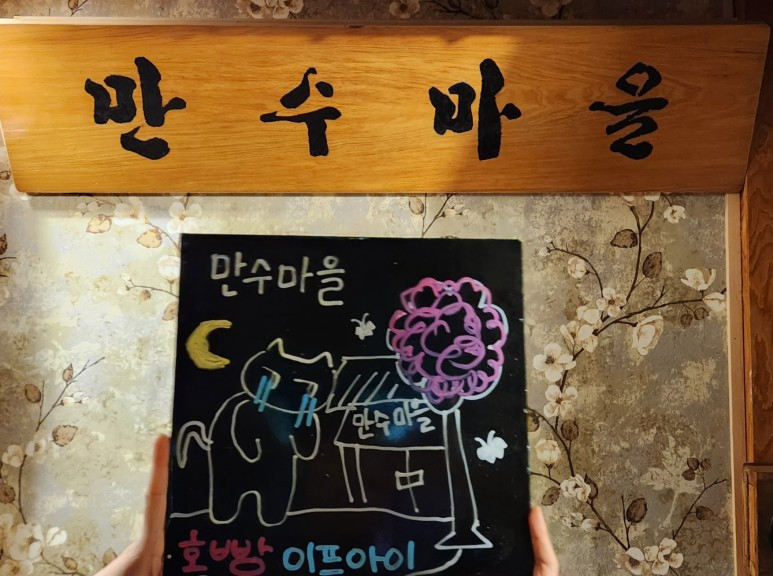 만수마을
만수마을
만수마을
호빵 이프아이